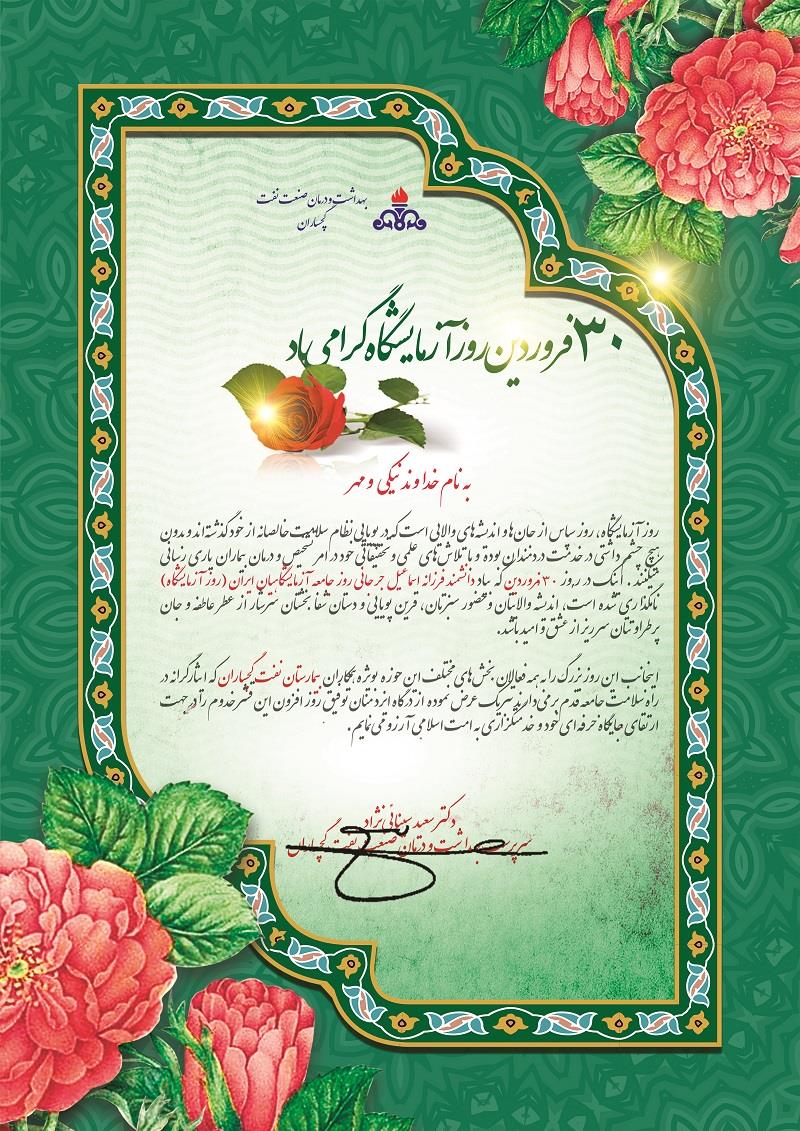 بهداشت و درمان صنعت نفت
گچساران
۳۰ فروردین روز آزمایشگاه گرامی باد
به نام خداوند نیکی و مهر
روز آزمایشگاه، روز سپاس از جان ها و اندیشه های والایی است که در پویایی نظام سلامت خالصانه از خود گذشته اند و بدون
هیچ چشم داشتی در خدمت دردمندان بوده و با تلاش های علمی و تحقیقاتی خود در امر تشخیص و درمان بیماران یاری رسانی
میکنند. اینک در روز ۳۰ فروردین که بیاد دانشمند فرزانه اسماعیل جرجانی روز جامعه آزمایشگاهیان ایران (روز آزمایشگاه)
نامگذاری شده است، اندیشه والایتان و حضور سبزتان، قرین پویایی و دستان شفابخشتان سرشار از عطر عاطفه و جان
پرطراوتتان سرریز از عشق و امید باشد.
اینجانب این روز بزرگ را به همه فعالان بخش های مختلف این حوزه بویژه همکاران بیمارستان نفت گچساران که ایثارگرانه در
راه سلامت جامعه قدم برمی دارند تبریک عرض نموده از درگاه ایزد منان توفیق روز افزون این قشر خدوم را در جهت
ارتقای جایگاه حرفه ای خود و خدمتگزاری به امت اسلامی آرزو می نمایم.
دکتر سعید سینائی نژاد
سرپرست بهداشت و درمان صنعت نفت گچساران